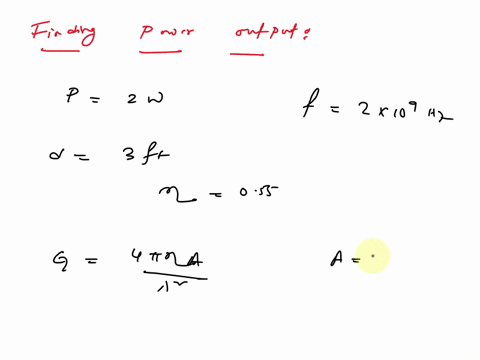 Finding Power output:
P = 2 W
f = 2 × 10⁹ Hz
d = 3 ft
η = 0.55
G = 4πηA / λ²
A =